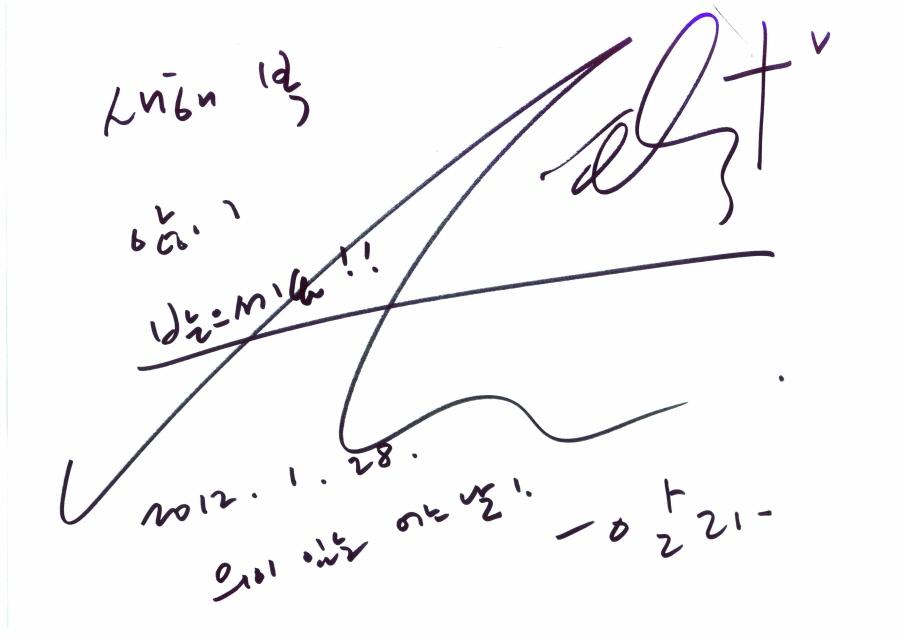 새해 복
많이
받으세요!!
2012. 1. 28.
의미 있는 어느 날!
- 알리 -